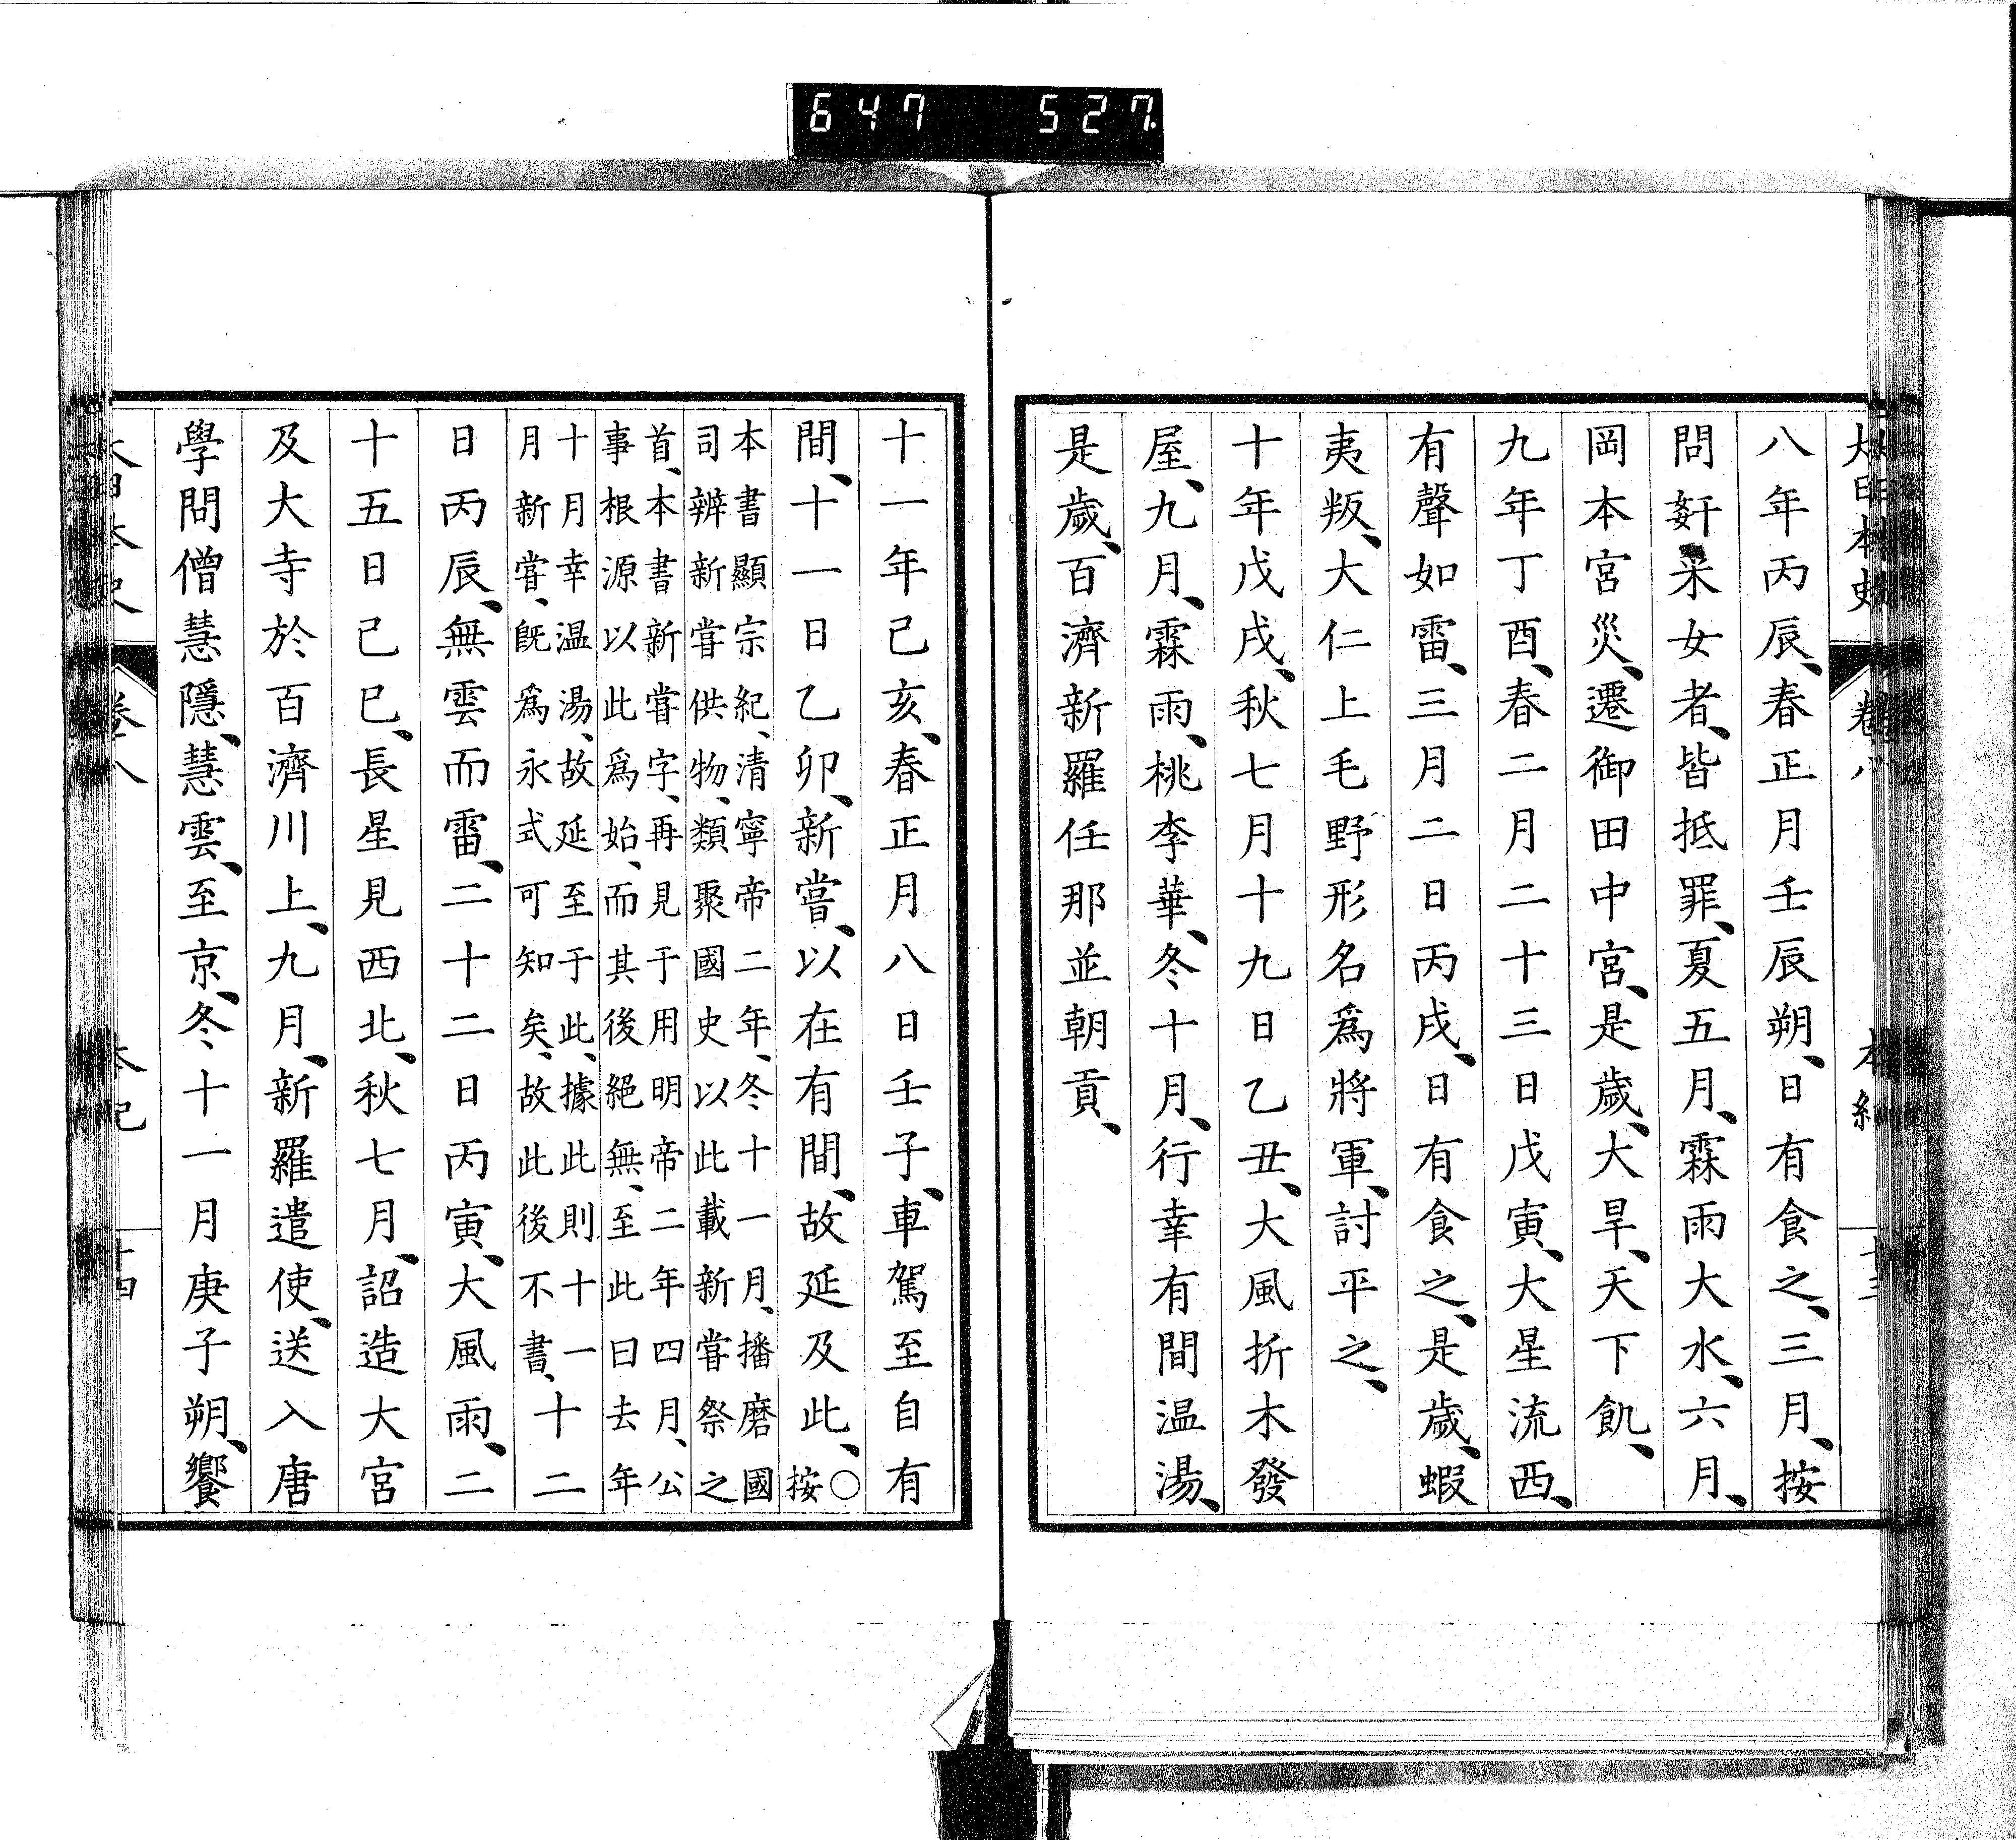 647 527
大日本史 卷八 本紀
八年丙辰、春正月壬辰朔、日有食之、三月、按
問姧采女者、皆抵罪、夏五月、霖雨大水、六月、
岡本宮災、遷御田中宮、是歲、大旱、天下飢、
九年丁酉、春二月二十三日戊寅、大星流西、
有聲如雷、三月二日丙戌、日有食之、是歲、蝦
夷叛、大仁上毛野形名爲將軍、討平之、
十年戊戌、秋七月十九日乙丑、大風折木發
屋、九月、霖雨、桃李華、冬十月、行幸有間温湯、
是歲、百濟新羅任那並朝貢、
十一年己亥、春正月八日壬子、車駕至自有
間、十一日乙卯、新嘗、以在有間、故延及此、○按
本書顯宗紀、清寧帝二年、冬十一月、播磨國
司辨新嘗供物、類聚國史以此載新嘗祭之
首、本書新嘗字、再見于用明帝二年四月、公
事根源以此爲始、而其後絕無、至此曰去年
十月幸温湯、故延至于此、據此則十一
月新嘗、旣爲永式可知矣、故此後不書、十二
日丙辰、無雲而雷、二十二日丙寅、大風雨、二
十五日己巳、長星見西北、秋七月、詔造大宮
及大寺於百濟川上、九月、新羅遣使、送入唐
學問僧慧隱、慧雲、至京、冬十一月庚子朔、饗
大日本史 卷八 本紀 十四